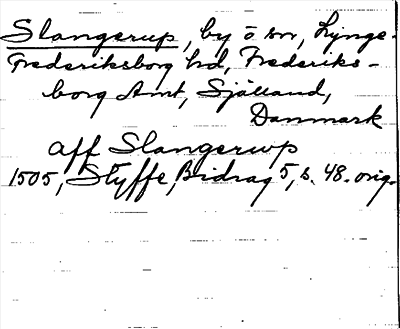 Slangerup, by o sn, Lynge-
Frederiksborg hd, Frederiks-
borg Amt, Sjölland,
Danmark
aff Slangerwp
1505, Styffe, Bidrag 5, s. 48. orig.